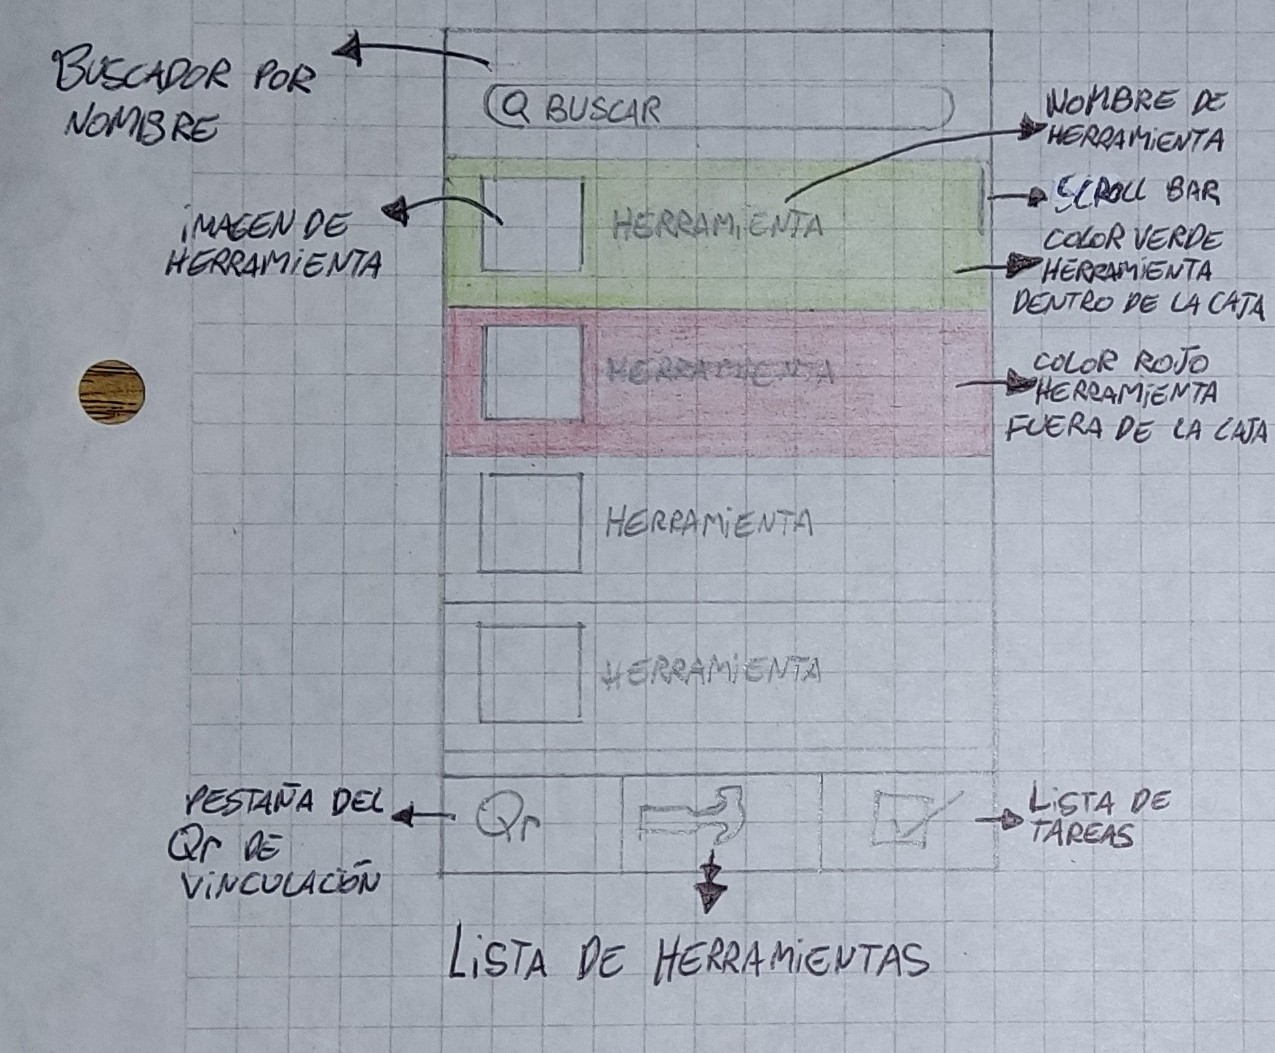 BUSCADOR POR
NOMBRE
BUSCAR
NOMBRE DE
HERRAMIENTA
SCROLL BAR
IMAGEN DE
HERRAMIENTA
HERRAMIENTA
COLOR VERDE
HERRAMIENTA
DENTRO DE LA CAJA
HERRAMIENTA
COLOR ROJO
HERRAMIENTA
FUERA DE LA CAJA
HERRAMIENTA
HERRAMIENTA
PESTAÑA DEL
Qr DE
VINCULACIÓN
Qr
LISTA DE
TAREAS
LISTA DE HERRAMIENTAS